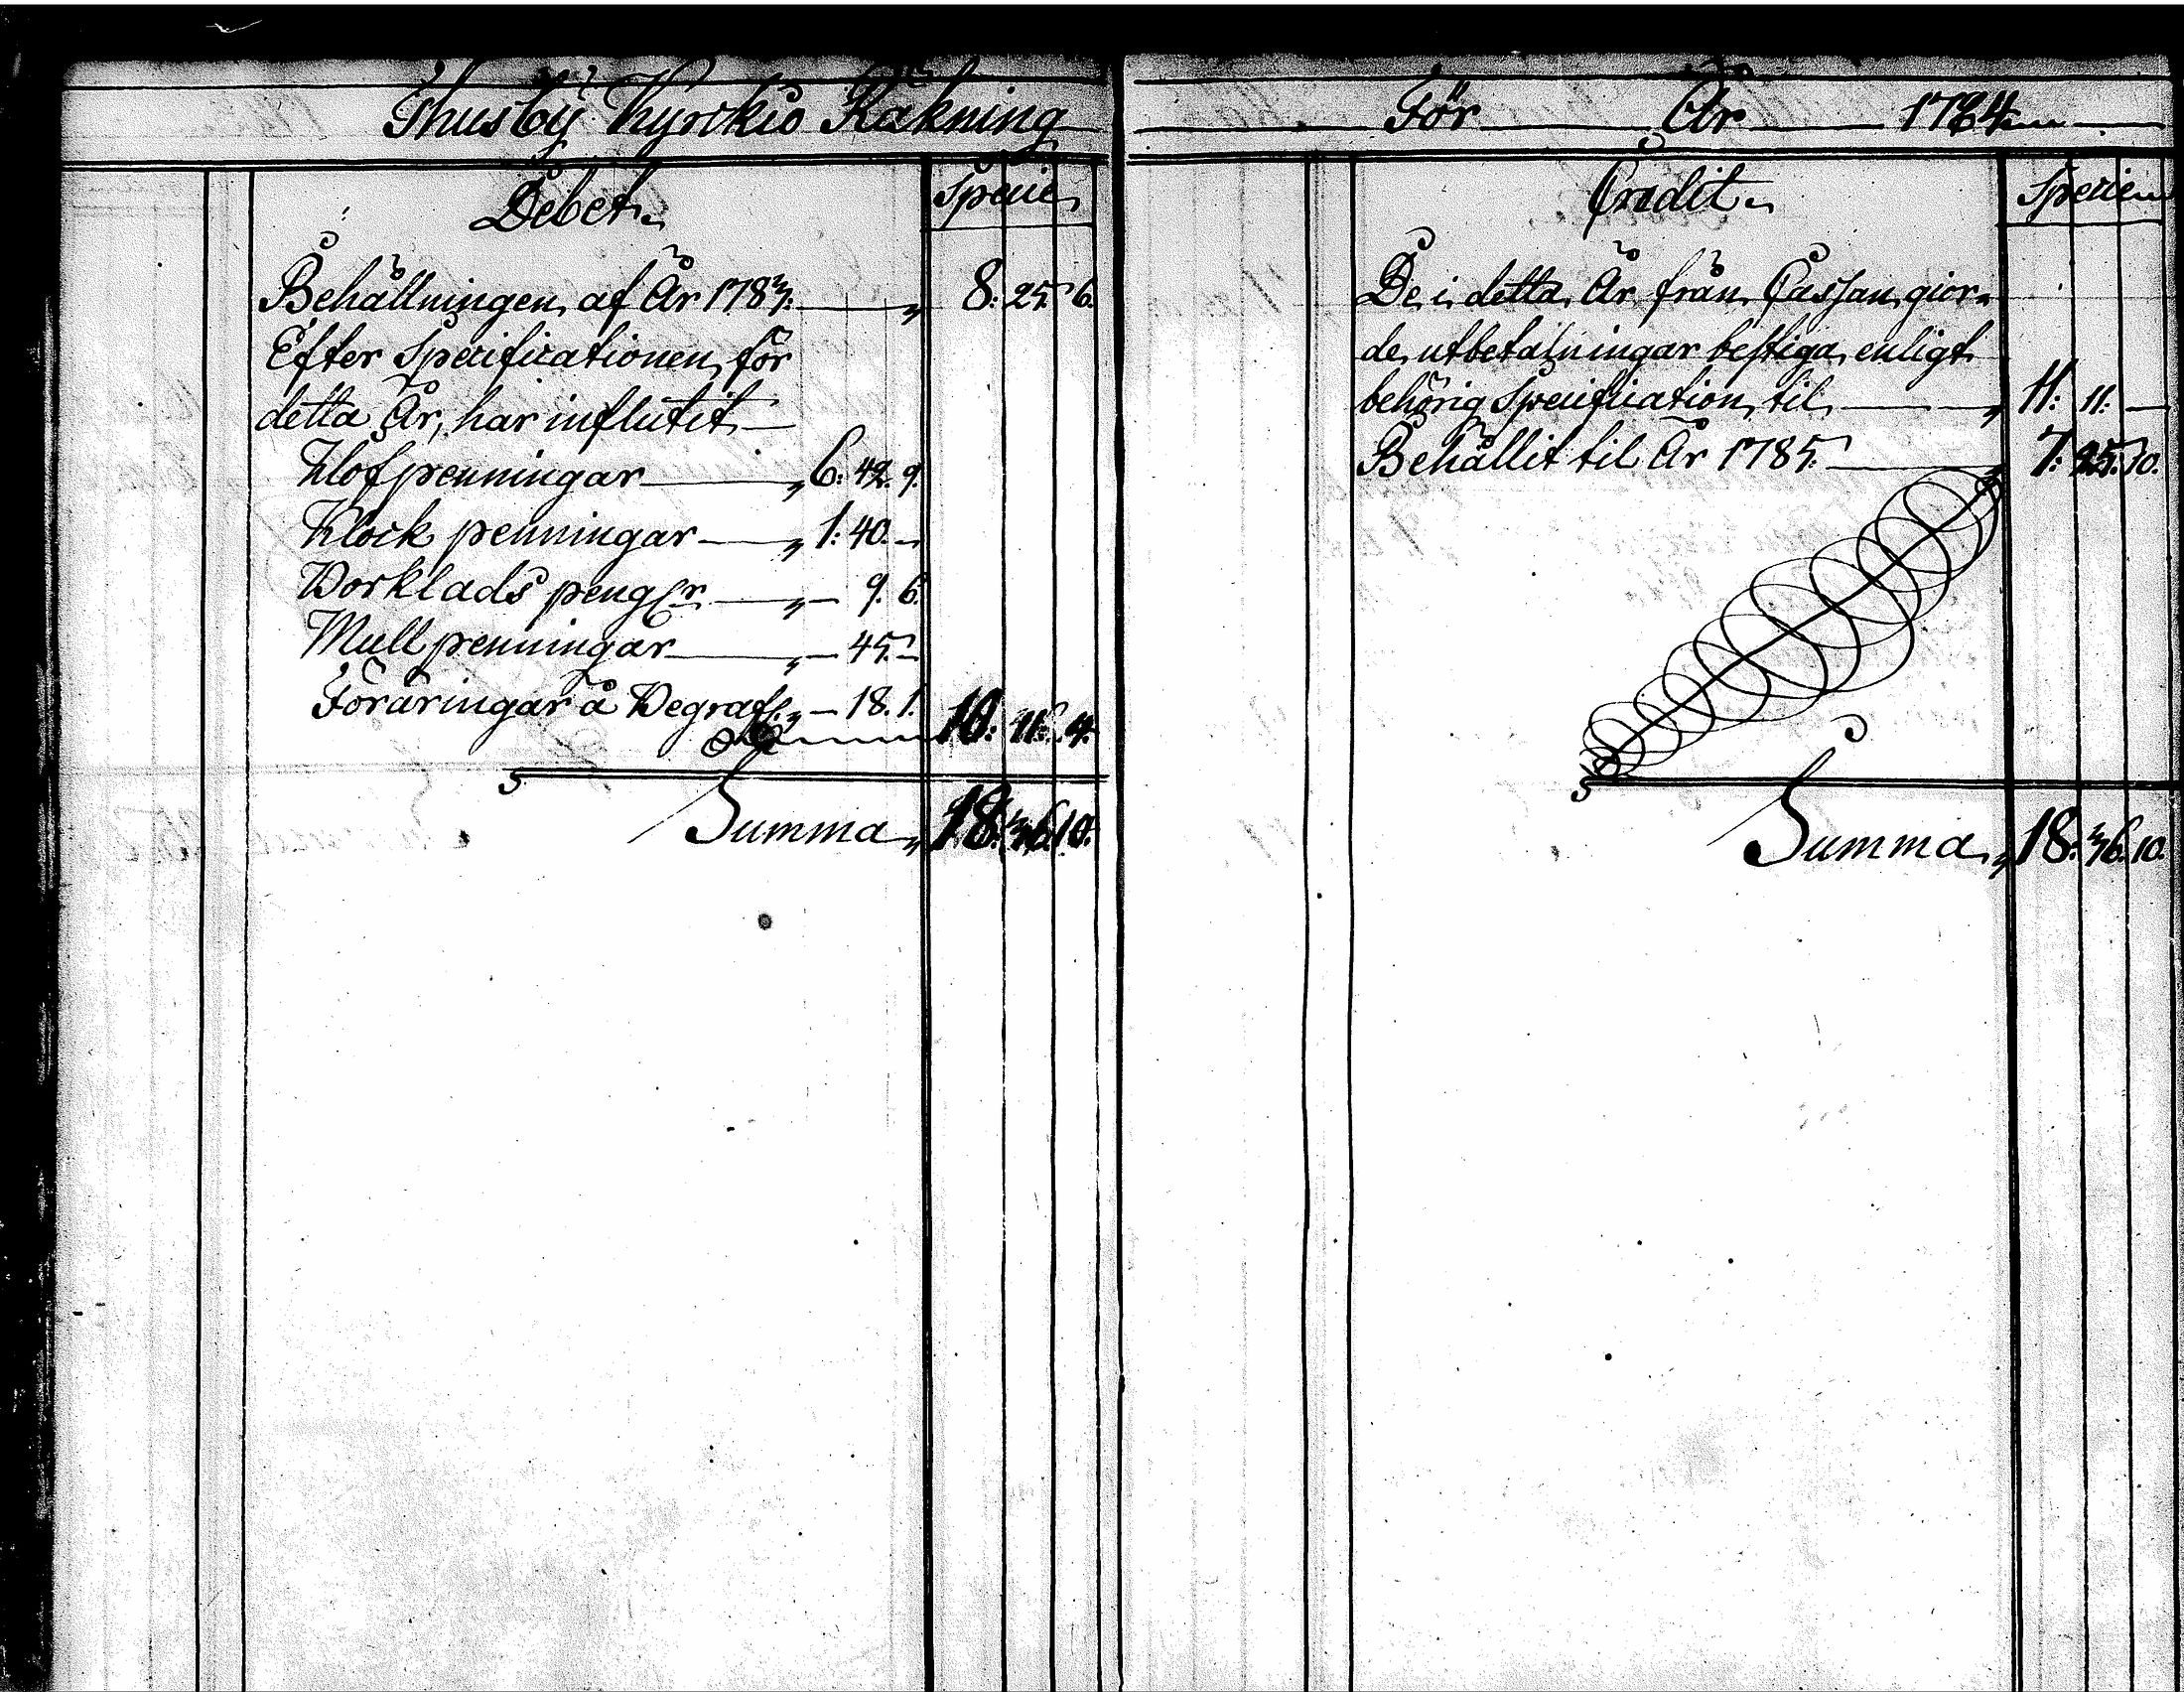 Thusby Kyrckio Räkning
Debet. Specie
Behållningen af År 1783. 8: 25. 6.
Efter Specificationen för
detta År, har influtit
Håfpenningar 6: 42. 9.
Klock penningar 1: 40. –
Borklads peng:r – 9. 6.
Mull penningar – 45. –
Föräringar å Begrafn. – 18. 1. 10: 11. 4.
Summa 18: 36. 10.
För År 1784
Credit. Specie
De i detta År från Cassan gior-
de utbetalningar bestiga enligt
behörig Specification, til 11: 11: –
Behållit til År 1785. 7: 25. 10.
Summa 18: 36. 10.